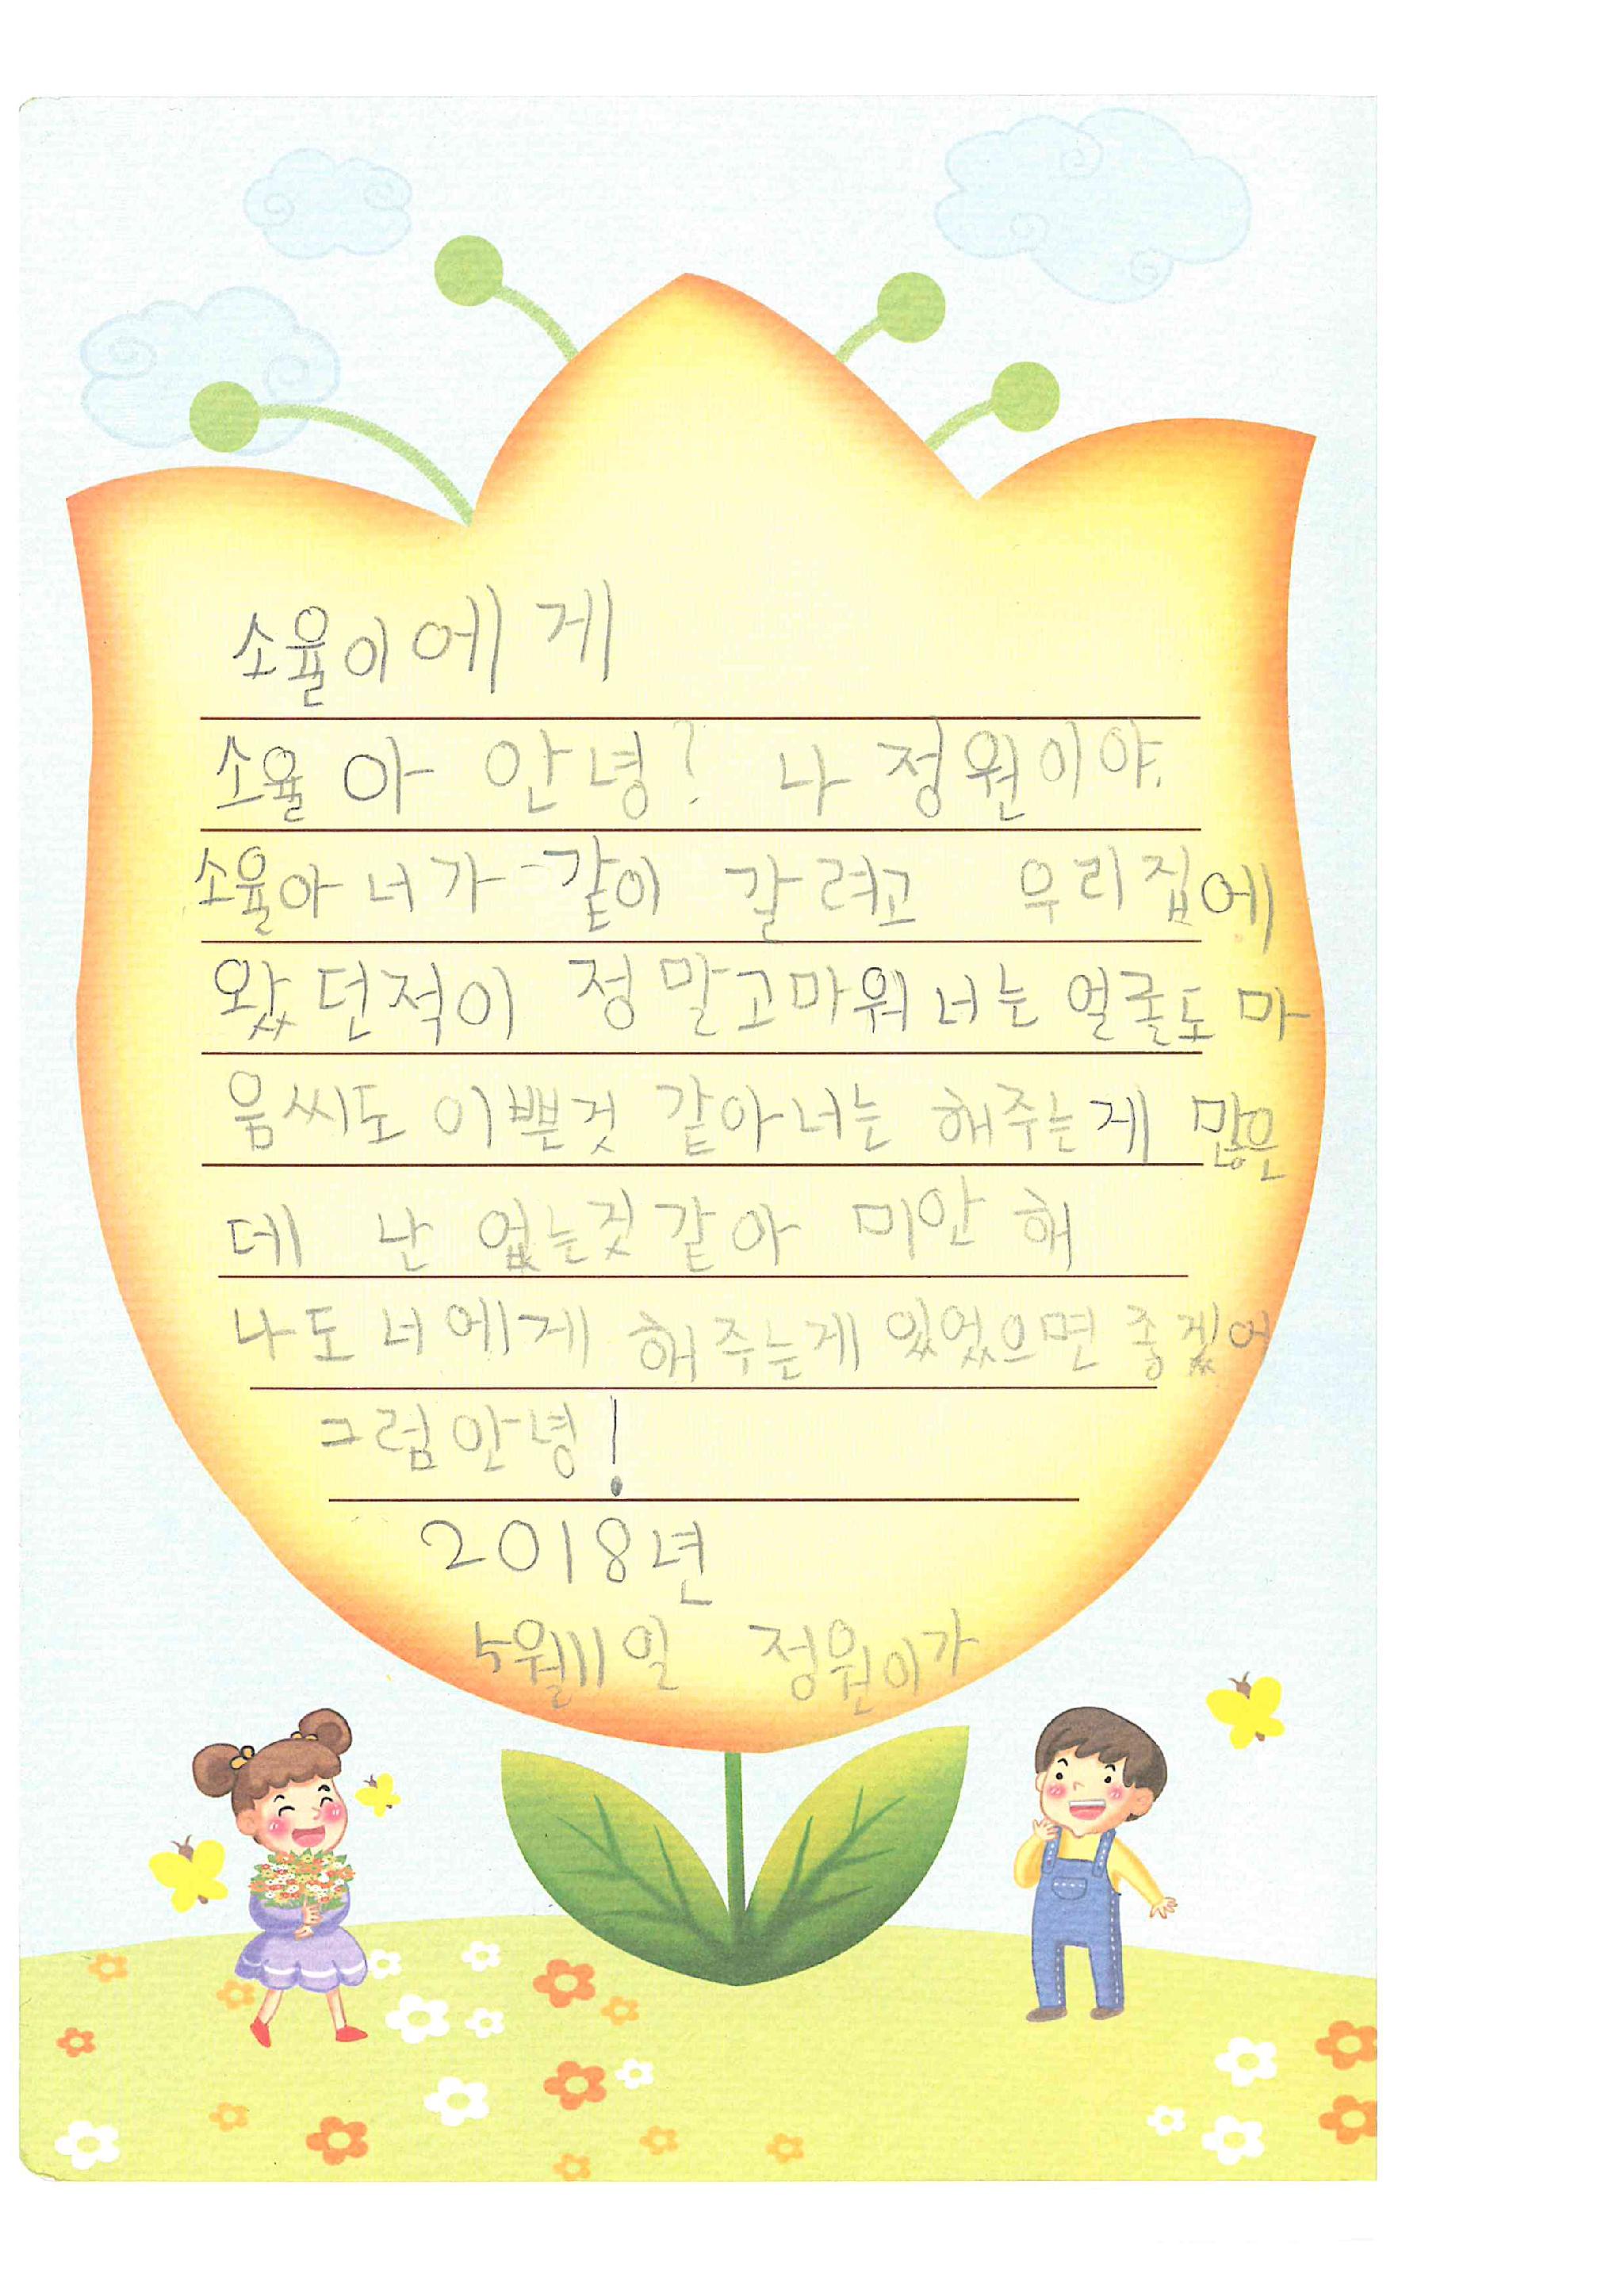 소율이에게
소율아 안녕? 나 정원이야.
소율아 너가 같이 갈려고 우리집에
왔던적이 정말고마워 너는 얼굴도 마
음씨도 이쁜것 같아너는 해주는게 많은
데 난 없는것같아 미안해
나도 너에게 해주는게 있었으면 좋겠어
그럼안녕!
2018년
5월11일 정원이가